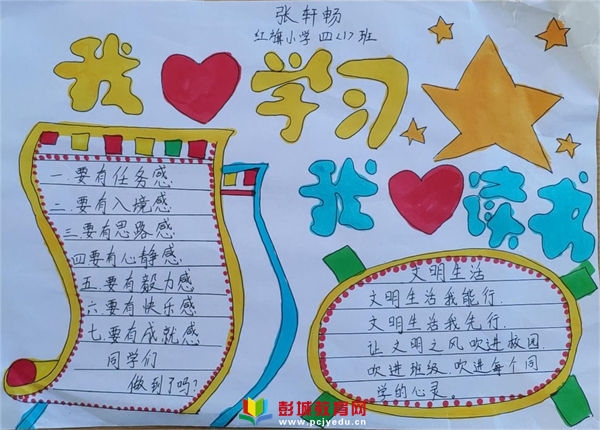 张轩畅
红旗小学四(1)班
我❤学习
我❤读书
一.要有任务感
二.要有入境感
三.要有思路感
四要有心静感
五.要有毅力感
六.要有快乐感
七.要有成就感
同学们
做到了吗?
文明生活
文明生活我能行
文明生活我先行.
让文明之风吹进校园
吹进班级.吹进每个同
学的心灵。
彭城教育网
www.pcjyedu.cn